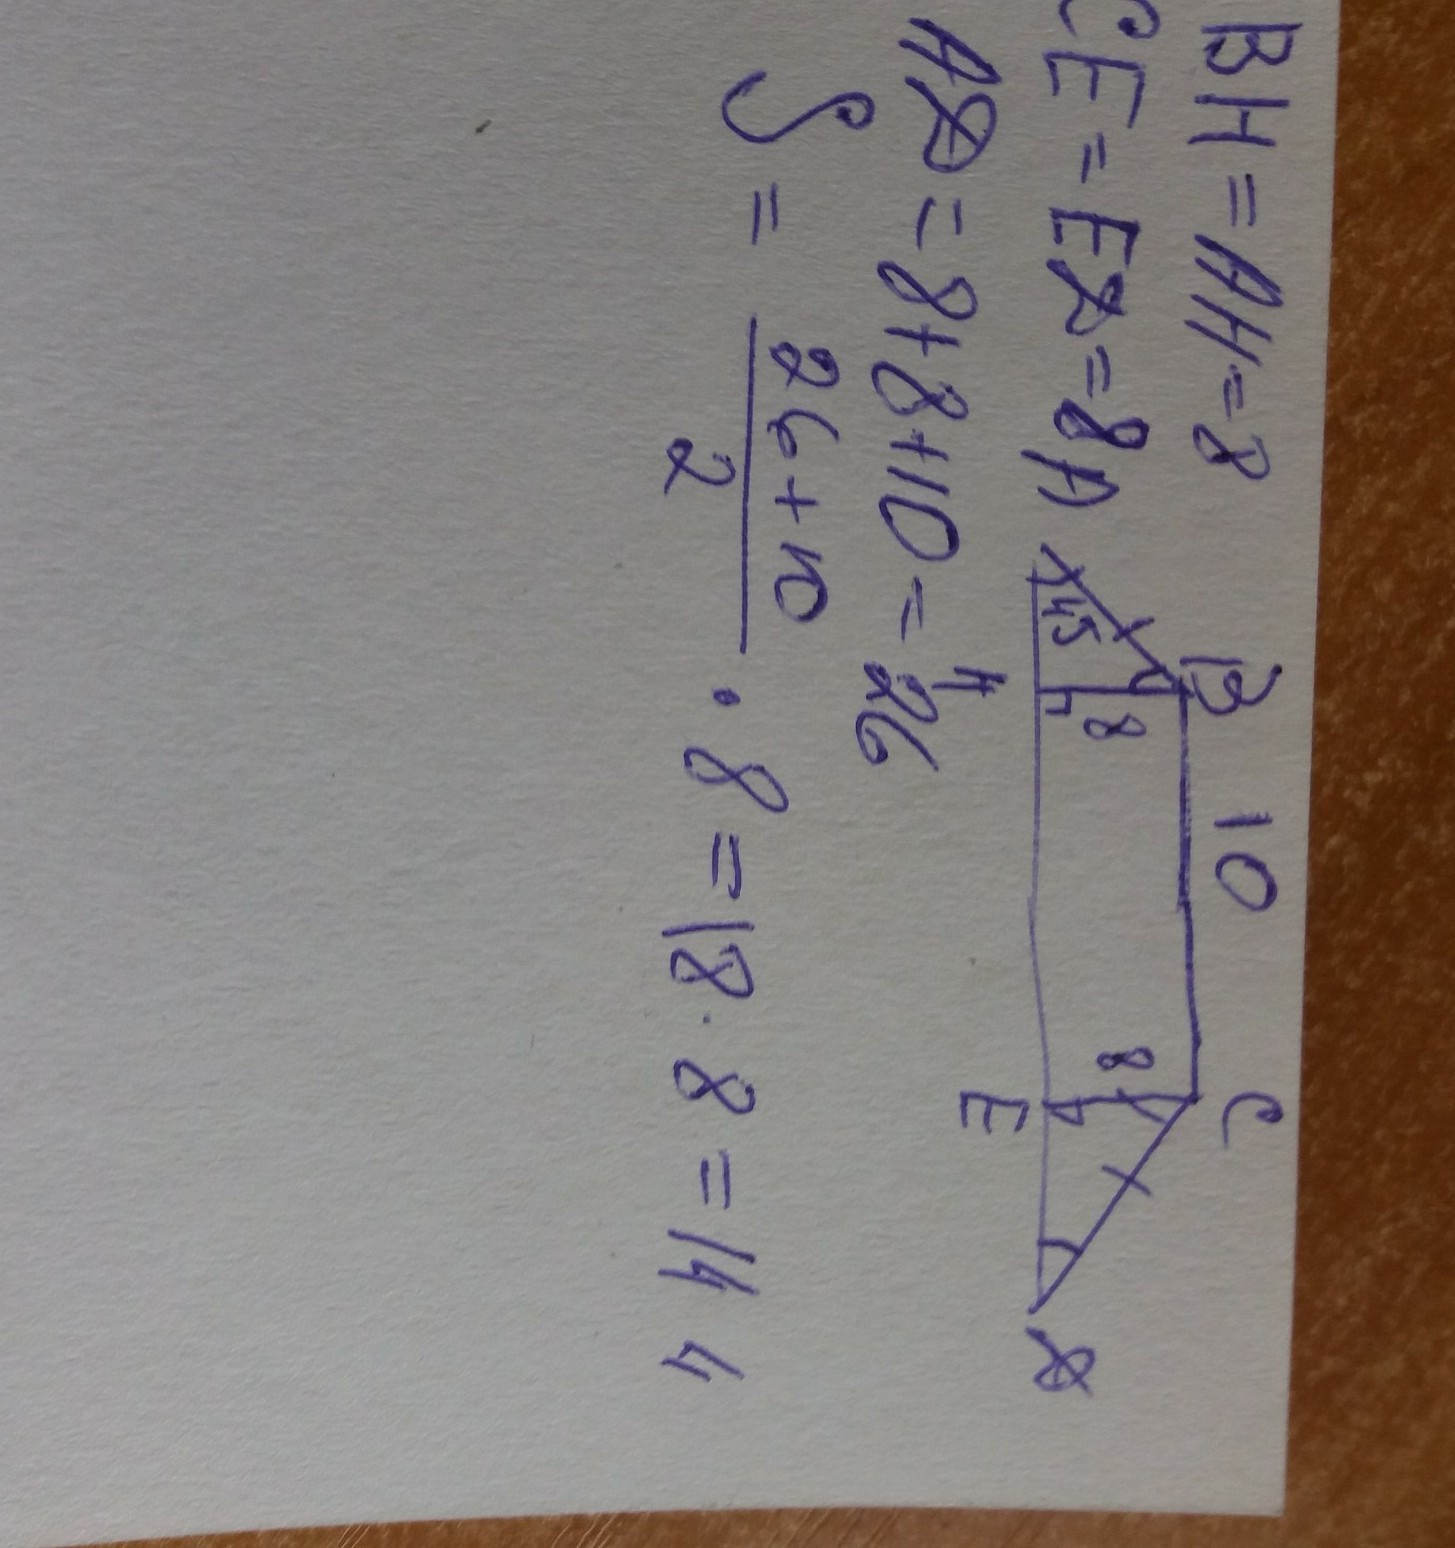 BH = AH = 8
CE = ED = 8
AD = 8 + 8 + 10 = 26
S = 26 + 10 / 2 · 8 = 18 · 8 = 144
B 10 C
8 8
A 45 D
H E